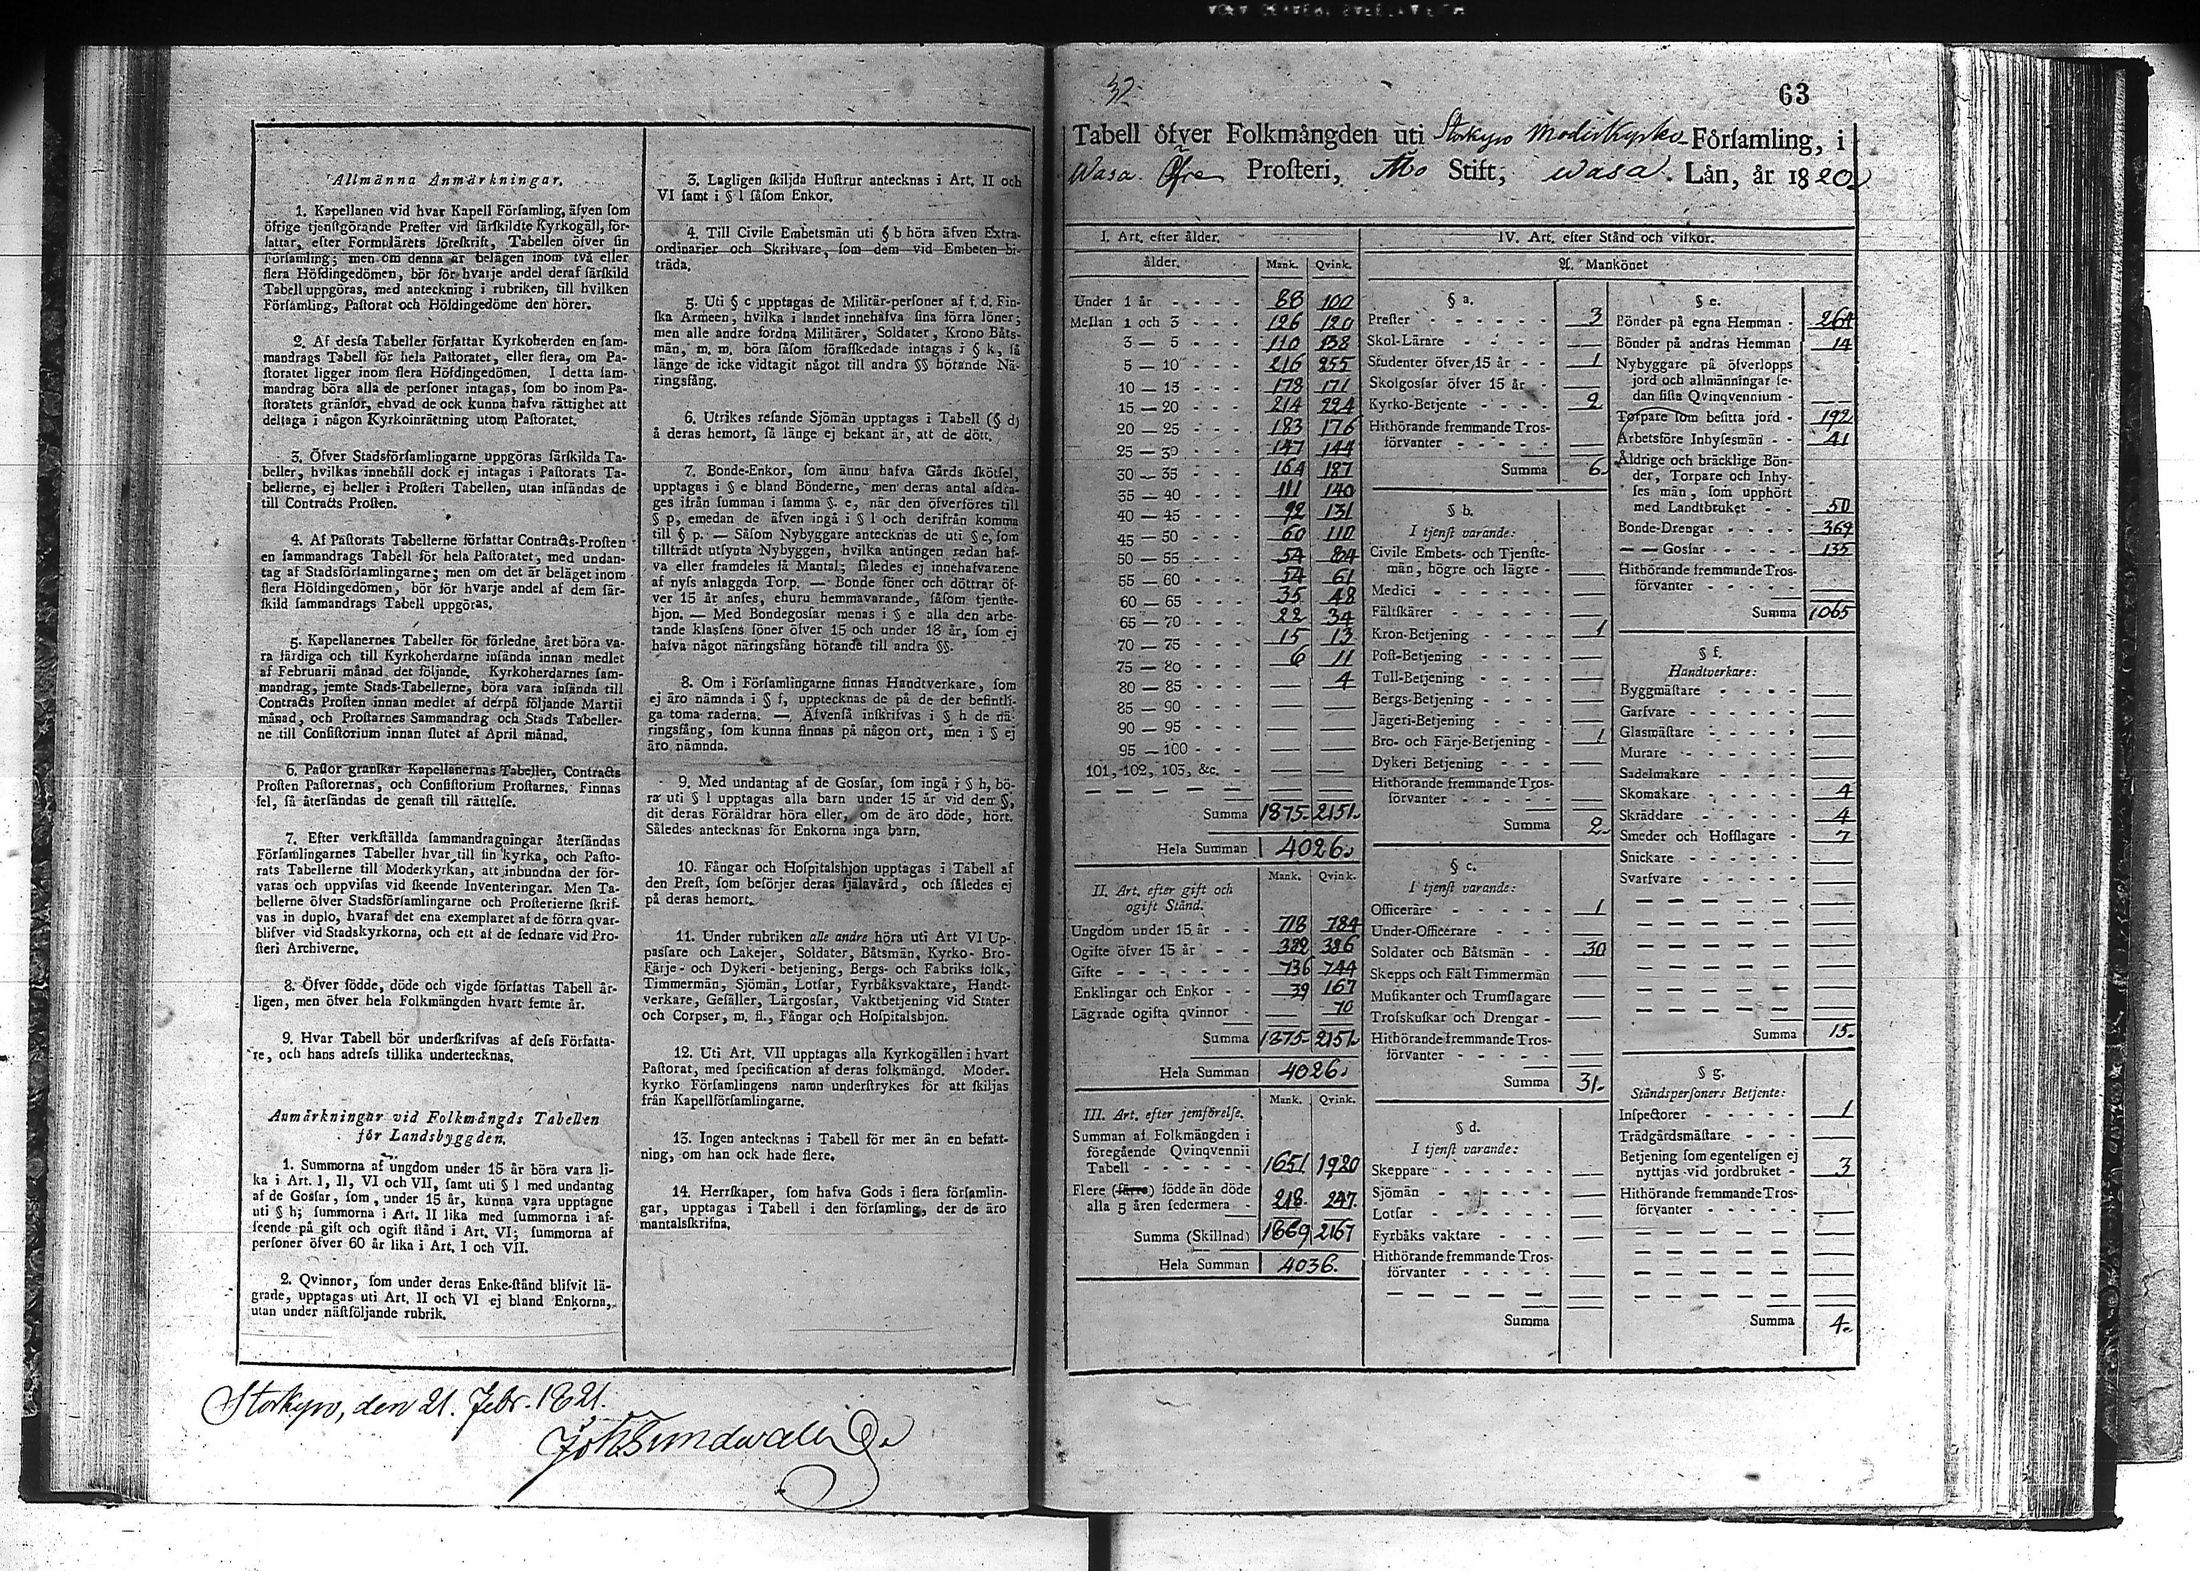 Allmänna Anmärkningar.
1. Kapellanen vid hvar Kapell Församling, äfven som
öfrige tjenstgörande Prester vid särskildte Kyrkogäll, för-
fattar, efter Formulärets föreskrift, Tabellen öfver sin
Församling; men om denna är belägen inom två eller
flera Höfdingedömen, bör för hvarje andel deraf särskild
Tabell uppgöras, med anteckning i rubriken, till hvilken
Församling, Pastorat och Höfdingedöme den hörer.
2. Af dessa Tabeller författar Kyrkoherden en sam-
mandrags Tabell för hela Pastoratet, eller flera, om Pa-
storatet ligger inom flera Höfdingedömen. I detta sam-
mandrag böra alla de personer intagas, som bo inom Pa-
storatets gränsor, ehvad de ock kunna hafva rättighet att
deltaga i någon Kyrkoinrättning utom Pastoratet.
3. Öfver Stadsförsamlingarne uppgöras särskilda Ta-
beller, hvilkas innehåll dock ej intagas i Pastorats Ta-
bellerne, ej heller i Prosteri Tabellen, utan insändas de
till Contracts Prosten.
4. Af Pastorats Tabellerne författar Contracts-Prosten
en sammandrags Tabell för hela Pastoratet, med undan-
tag af Stadsförsamlingarne; men om det är beläget inom
flera Höfdingedömen, bör för hvarje andel af dem sär-
skild sammandrags Tabell uppgöras.
5. Kapellanernes Tabeller för förledne året böra va-
ra färdiga och till Kyrkoherdarne insända innan medlet
af Februarii månad det följande. Kyrkoherdarnes sam-
mandrag, jemte Stads-Tabellerne, böra vara insända till
Contracts Prosten innan medlet af derpå följande Martii
månad, och Prostarnes Sammandrag och Stads Tabeller-
ne till Consistorium innan slutet af April månad.
6. Pastor granskar Kapellanernas Tabeller, Contracts
Prosten Pastorernas, och Consistorium Prostarnes. Finnas
fel, så återsändas de genast till rättelse.
7. Efter verkställda sammandragningar återsändas
Församlingarnes Tabeller hvar till sin kyrka, och Pasto-
rats Tabellerne till Moderkyrkan, att inbundna der för-
varas och uppvisas vid skeende Inventeringar. Men Ta-
bellerne öfver Stadsförsamlingarne och Prosterierne skrif-
vas in duplo, hvaraf det ena exemplaret af de förra qvar-
blifver vid Stadskyrkorna, och ett af de sednare vid Pro-
steri Archiverne.
8. Öfver födde, döde och vigde författas Tabell år-
ligen, men öfver hela Folkmängden hvart femte år.
9. Hvar Tabell bör underskrifvas af dess Författa-
re, och hans adress tillika undertecknas.
Anmärkningar vid Folkmängds Tabellen
för Landsbyggden.
1. Summorna af ungdom under 15 år böra vara li-
ka i Art. I, II, VI och VII, samt uti § l med undantag
af de Gossar, som, under 15 år, kunna vara upptagne
uti § h; summorna i Art. II lika med summorna i af-
seende på gift och ogift stånd i Art. VI; summorna af
personer öfver 60 år lika i Art. I och VII.
2. Qvinnor, som under deras Enke-stånd blifvit lä-
grade, upptagas uti Art. II och VI ej bland Enkorna,
utan under nästföljande rubrik.
3. Lagligen skiljda Hustrur antecknas i Art. II och
VI samt i § l såsom Enkor.
4. Till Civile Embetsmän uti § b höra äfven Extra-
ordinarier och Skrifvare, som dem vid Embeten bi-
träda.
5. Uti § c upptagas de Militär-personer af f. d. Fin-
ska Armeen, hvilka i landet innehafva sina förra löner;
men alle andre fordna Militärer, Soldater, Krono Båts-
män, m. m. böra såsom förafskedade intagas i § k, så
länge de icke vidtagit något till andra §§ hörande Nä-
ringsfång.
6. Utrikes resande Sjömän upptagas i Tabell (§ d)
å deras hemort, så länge ej bekant är, att de dött.
7. Bonde-Enkor, som ännu hafva Gårds skötsel,
upptagas i § e bland Bönderne, men deras antal afdra-
ges ifrån summan i samma §. e, när den öfverföres till
§ p, emedan de äfven ingå i § l och derifrån komma
till § p. — Såsom Nybyggare antecknas de uti § e, som
tillträdt utsynta Nybyggen, hvilka antingen redan haf-
va eller framdeles få Mantal; således ej innehafvarene
af nyss anlaggda Torp. — Bonde söner och döttrar öf-
ver 15 år anses, ehuru hemmavarande, såsom tjenste-
hjon. — Med Bondegossar menas i § e alla den arbe-
tande klassens söner öfver 15 och under 18 år, som ej
hafva något näringsfång hörande till andra §§.
8. Om i Församlingarne finnas Handtverkare, som
ej äro nämnda i § f, upptecknas de på de der befintli-
ga toma raderna. — Äfvenså inskrifvas i § h de nä-
ringsfång, som kunna finnas på någon ort, men i § ej
äro nämnda.
9. Med undantag af de Gossar, som ingå i § h, bö-
ra uti § l upptagas alla barn under 15 år vid dem §,
dit deras Föräldrar höra eller, om de äro döde, hört.
Således antecknas för Enkorna inga barn.
10. Fångar och Hospitalshjon upptagas i Tabell af
den Prest, som besörjer deras själavård, och således ej
på deras hemort.
11. Under rubriken alle andre höra uti Art VI Up-
passare och Lakejer, Soldater, Båtsmän, Kyrko- Bro-
Färje- och Dykeri-betjening, Bergs- och Fabriks folk,
Timmermän, Sjömän, Lotsar, Fyrbåksvaktare, Handt-
verkare, Gesäller, Lärgossar, Vaktbetjening vid Stater
och Corpser, m. fl., Fångar och Hospitalshjon.
12. Uti Art. VII upptagas alla Kyrkogällen i hvart
Pastorat, med specification af deras folkmängd. Moder-
kyrko Församlingens namn understrykes för att skiljas
från Kapellförsamlingarne.
13. Ingen antecknas i Tabell för mer än en befatt-
ning, om han ock hade flere.
14. Herrskaper, som hafva Gods i flera församlin-
gar, upptagas i Tabell i den församling, der de äro
mantalsskrifna.
Storkyro, den 21. Febr. 1821.
32.
63
Tabell öfver Folkmängden uti Storkyro Moderkyrko-Församling, i
Wasa Öfre Prosteri, Åbo Stift, Wasa Län, år 1820.
I. Art. efter ålder.
ålder. Mank. Qvink.
Under 1 år 88 100
Mellan 1 och 3 126 120
3 — 5 110 138
5 — 10 216 255
10 — 15 178 171
15 — 20 214 224
20 — 25 183 176
25 — 30 147 144
30 — 35 164 187
35 — 40 111 140
40 — 45 92 131
45 — 50 60 110
50 — 55 54 84
55 — 60 54 61
60 — 65 35 48
65 — 70 22 34
70 — 75 15 13
75 — 80 6 11
80 — 85 — 4
85 — 90 — —
90 — 95 — —
95 — 100 — —
101, 102, 103, &c. — —
Summa 1875. 2151.
Hela Summan 4026.
Mank. Qvink.
II. Art. efter gift och
ogift Stånd.
Ungdom under 15 år 718 784
Ogifte öfver 15 år 382 386
Gifte 736 744
Enklingar och Enkor 39 167
Lägrade ogifta qvinnor — 70
Summa 1875. 2151.
Hela Summan 4026.
Mank. Qvink.
III. Art. efter jemförelse.
Summan af Folkmängden i
föregående Qvinqvennii
Tabell 1651 1920
Flere (färre) födde än döde
alla 5 åren sedermera 218. 247.
Summa (Skillnad) 1869 2167
Hela Summan 4036.
IV. Art. efter Stånd och vilkor.
A. Mankönet
§ a.
Prester 3
Skol-Lärare —
Studenter öfver 15 år 1
Skolgossar öfver 15 år —
Kyrko-Betjente 2
Hithörande fremmande Tros-
förvanter —
Summa 6.
§ b.
I tjenst varande:
Civile Embets- och Tjenste-
män, högre och lägre —
Medici —
Fältskärer —
Kron-Betjening 1
Post-Betjening —
Tull-Betjening —
Bergs-Betjening —
Jägeri-Betjening —
Bro- och Färje-Betjening 1
Dykeri Betjening —
Hithörande fremmande Tros-
förvanter —
Summa 2.
§ c.
I tjenst varande:
Officerare 1
Under-Officerare —
Soldater och Båtsmän 30
Skepps och Fält Timmermän —
Musikanter och Trumslagare —
Trosskuskar och Drengar —
Hithörande fremmande Tros-
förvanter —
Summa 31.
§ d.
I tjenst varande:
Skeppare —
Sjömän —
Lotsar —
Fyrbåks vaktare —
Hithörande fremmande Tros-
förvanter —
Summa
§ e.
Bönder på egna Hemman 264
Bönder på andras Hemman 14
Nybyggare på öfverlopps
jord och allmänningar se-
dan sista Qvinqvennium —
Torpare som besitta jord 192
Arbetsföre Inhysesmän 41
Åldrige och bräcklige Bön-
der, Torpare och Inhy-
ses män, som upphört
med Landtbruket 50
Bonde-Drengar 369
— — Gossar 135
Hithörande fremmande Tros-
förvanter —
Summa 1065
§ f.
Handtverkare:
Byggmästare —
Garfvare —
Glasmästare —
Murare —
Sadelmakare —
Skomakare 4
Skräddare 4
Smeder och Hofslagare 7
Snickare —
Svarfvare —
Summa 15.
§ g.
Ståndspersoners Betjente:
Inspectorer 1
Trädgårdsmästare —
Betjening som egenteligen ej
nyttjas vid jordbruket 3
Hithörande fremmande Tros-
förvanter —
Summa 4.